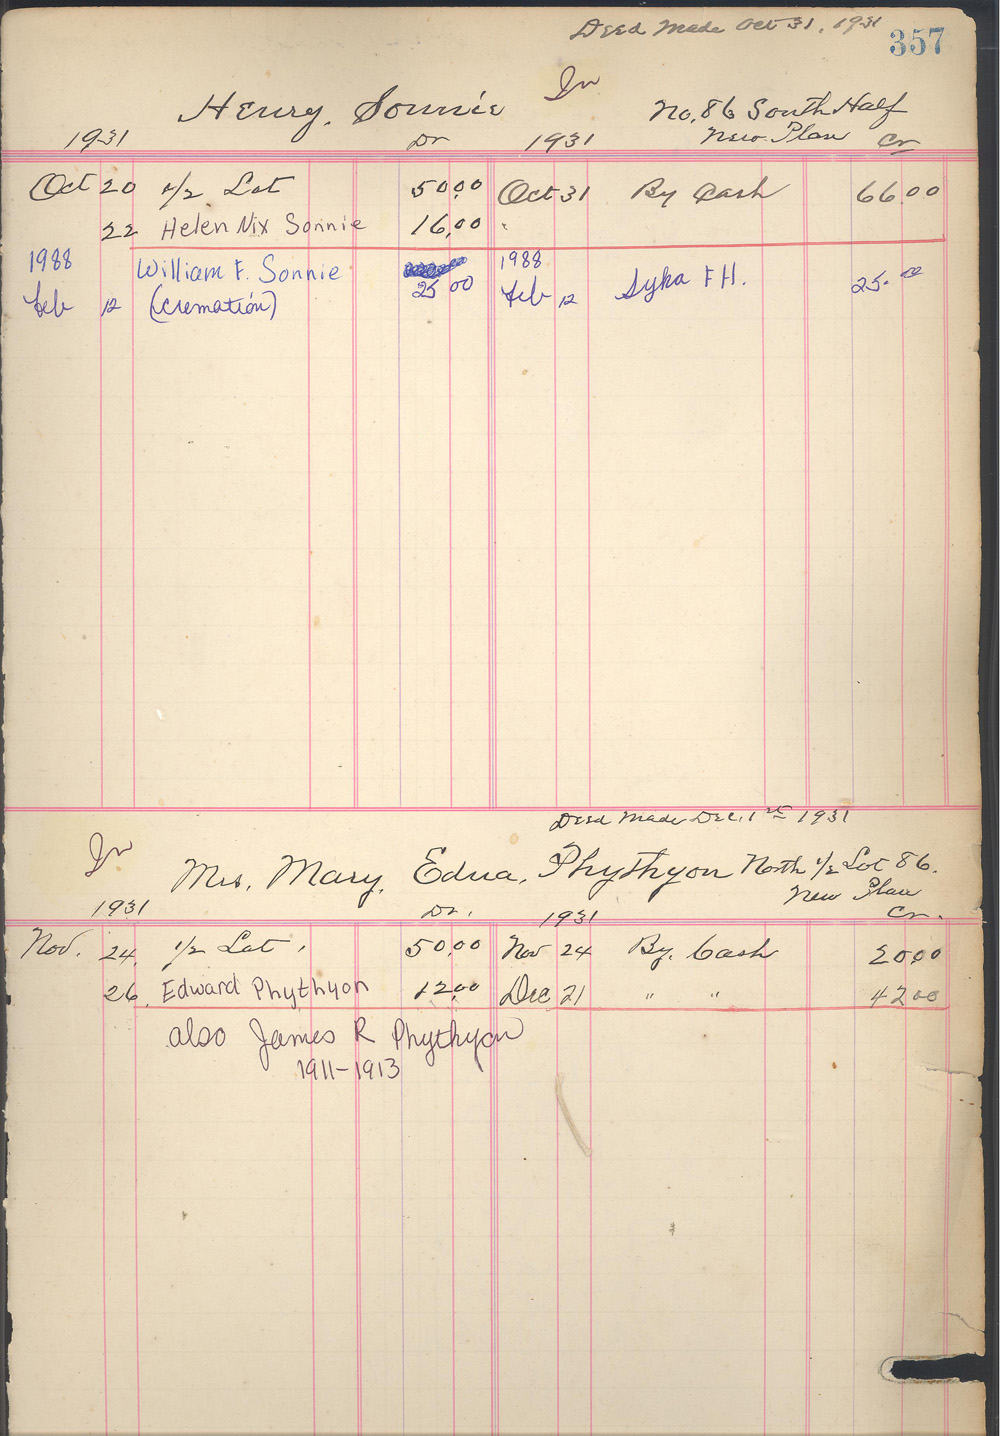 Deed Made Oct 31, 1931
357
In
Henry, Sonnie No. 86 South Half
1931 Dr 1931 New Plan Cr
Oct 20 1/2 Lot 50.00 Oct 31 By Cash 66.00
22 Helen Nix Sonnie 16.00
1988 William F. Sonnie 1988
Feb 12 (cremation) 25 00 Feb 12 Syka F H. 25.00
Deed Made Dec, 1st 1931
In
Mrs, Mary, Edna, Phythyon North 1/2 Lot 86.
New Plan
1931 Dr. 1931 Cr.
Nov. 24 1/2 Lot, 50.00 Nov 24 By. Cash 20.00
26. Edward Phythyon 12.00 Dec 21 " " 42 00
also James R Phythyon
1911-1913